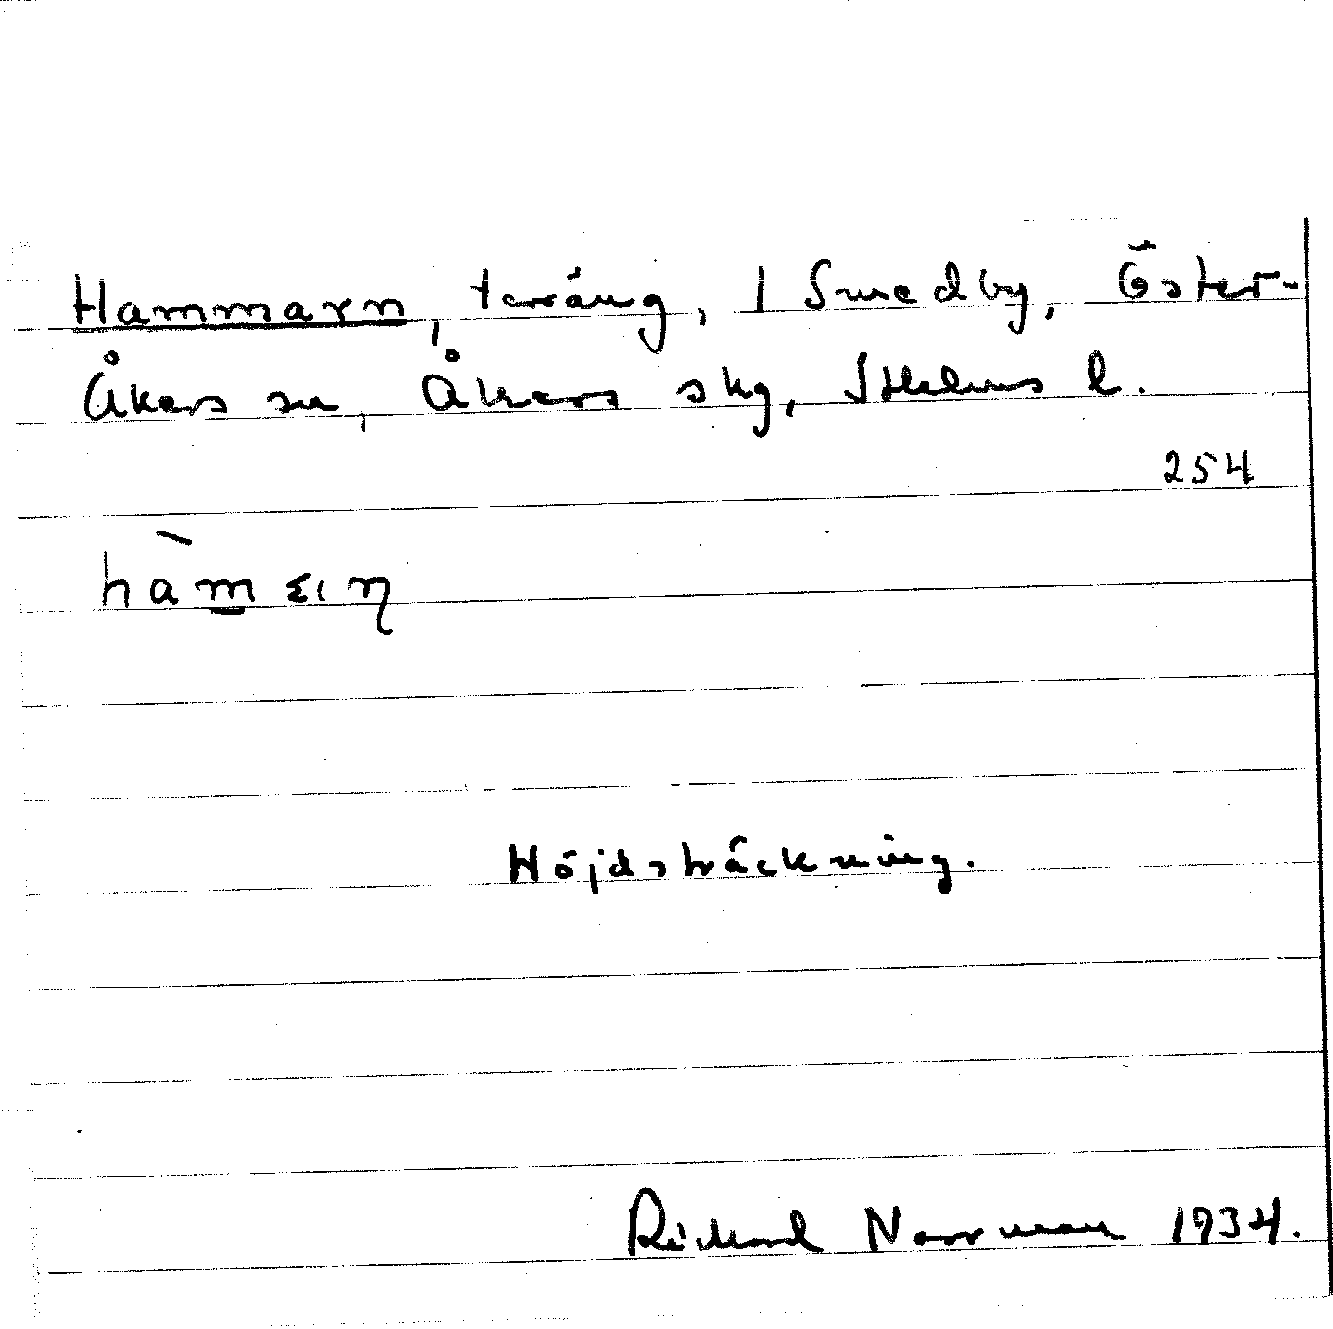 Hammarn, terräng, 1 Smedby, Öster-
Åkers sn, Åkers skg, Sthlms l.
254
Höjdsträckning.
Rickard Norrman 1934.